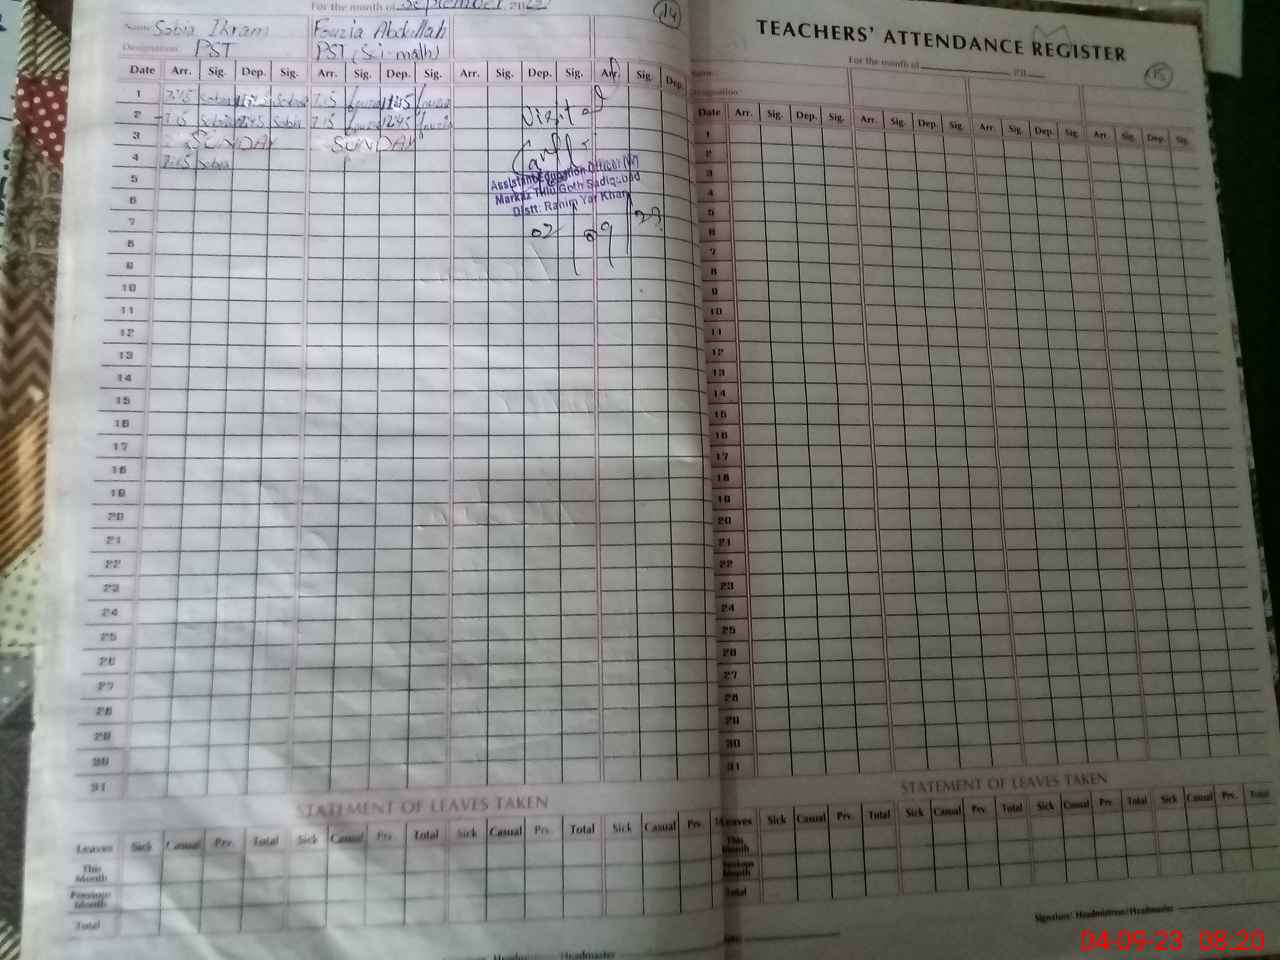 For the month of September, 2023
14
Name Sobia Ikram Fouzia Abdullah
Designation PST PST (Sci-math)
Date Arr. Sig. Dep. Sig. Arr. Sig. Dep. Sig. Arr. Sig. Dep. Sig. Arr. Sig. Dep.
1 7:15 Sobia Sobia 7:15 Fouzia 1145 Fouzia
2 7:15 Sobia 1245 Sobia 7:15 Fouzia 1245 Fouzia
3 SUNDAY SUNDAY
4 7:15 Sobia
5
6
7
8
9
10
11
12
13
14
15
16
17
18
19
20
21
22
23
24
25
26
27
28
29
30
31
Visited
Assistant Education Officer (W)
Markaz Goth Sadiqabad
Distt: Rahim Yar Khan
02/09/23
STATEMENT OF LEAVES TAKEN
Leaves Sick Casual Prv. Total Sick Casual Prv. Total Sick Casual Prv. Total Sick Casual Prv.
This Month
Previous Month
Total
Headmaster
TEACHERS' ATTENDANCE REGISTER
For the month of 20
15
Name:
Designation:
Date Arr. Sig. Dep. Sig. Arr. Sig. Dep. Sig. Arr. Sig. Dep. Sig. Arr. Sig. Dep. Sig.
1
2
3
4
5
6
7
8
9
10
11
12
13
14
15
16
17
18
19
20
21
22
23
24
25
26
27
28
29
30
31
STATEMENT OF LEAVES TAKEN
Leaves Sick Casual Prv. Total Sick Casual Prv. Total Sick Casual Prv. Total Sick Casual Prv. Total
This Month
Previous Month
Total
Signature' Headmistress/Headmaster
04-09-23 08:20